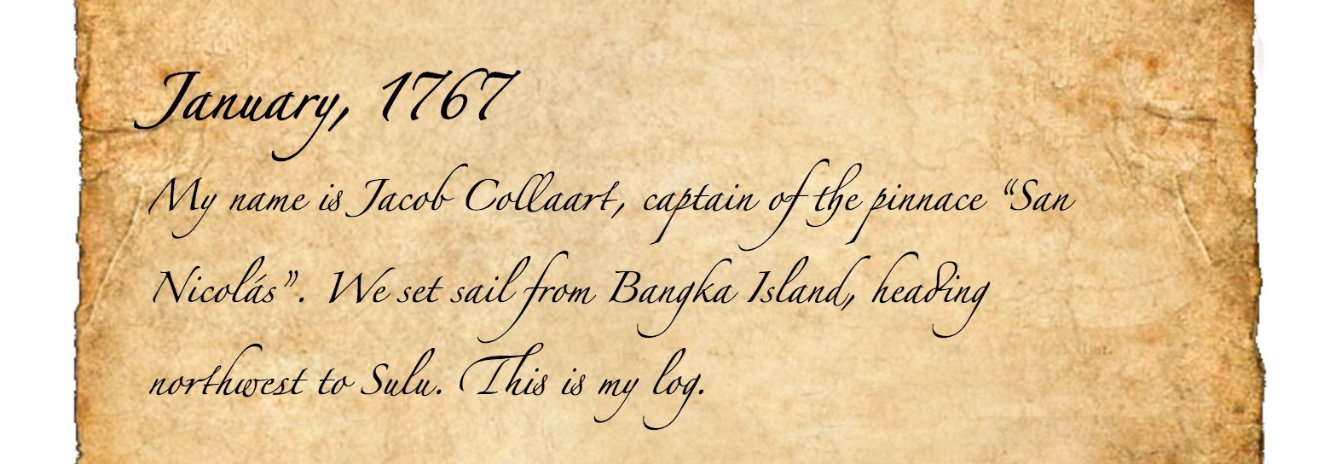 January, 1767
My name is Jacob Collaart, captain of the pinnace “San
Nicolás”. We set sail from Bangka Island, heading
northwest to Sulu. This is my log.